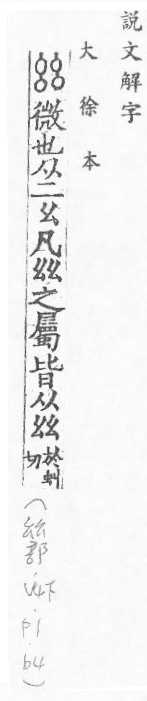 説文解字
大徐本
𢆶微也从二幺凡𢆶之屬皆从𢆶於虯切
(𢆶部.V4下.p1.b4)